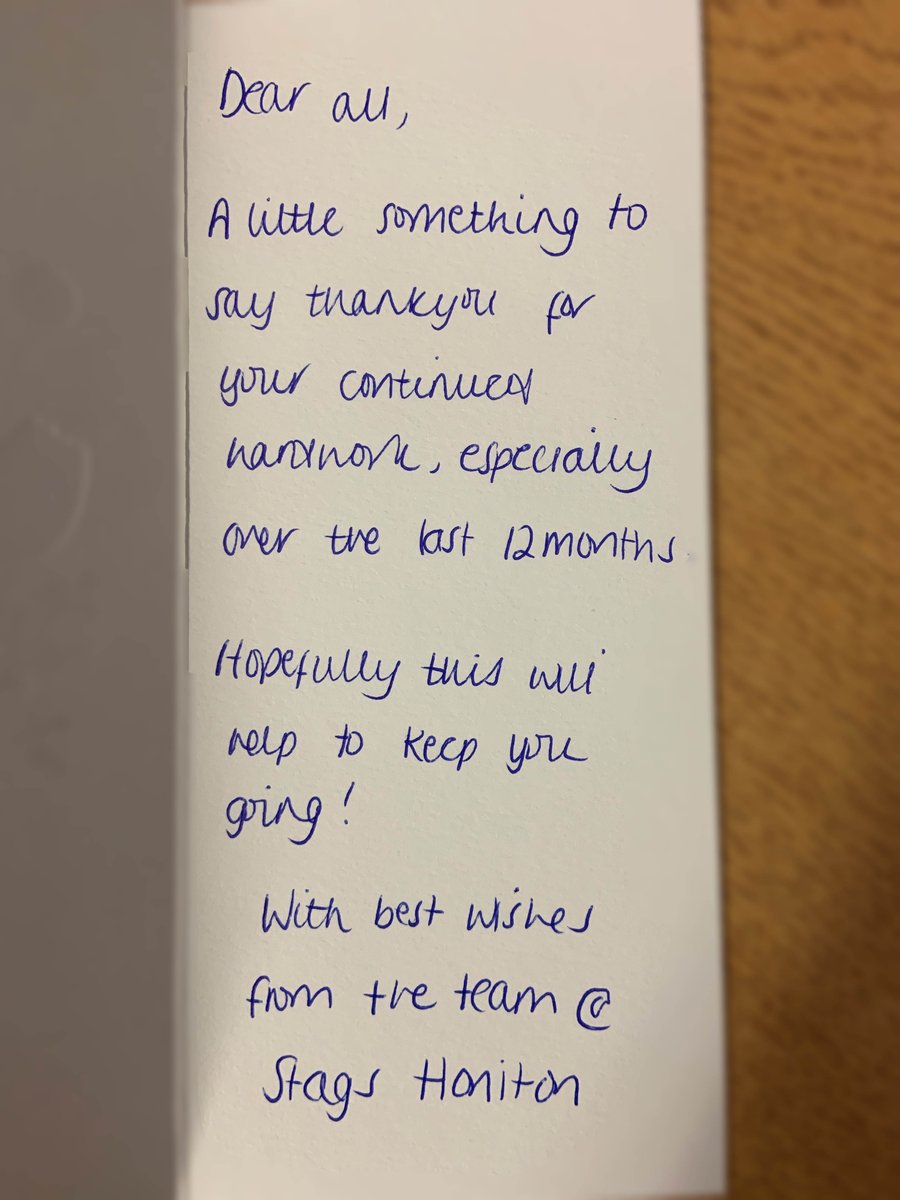 Dear all,
A little something to
say thankyou for
your continued
hardwork, especially
over the last 12 months
Hopefully this will
help to keep you
going!
With best wishes
from the team @
Stags Honiton